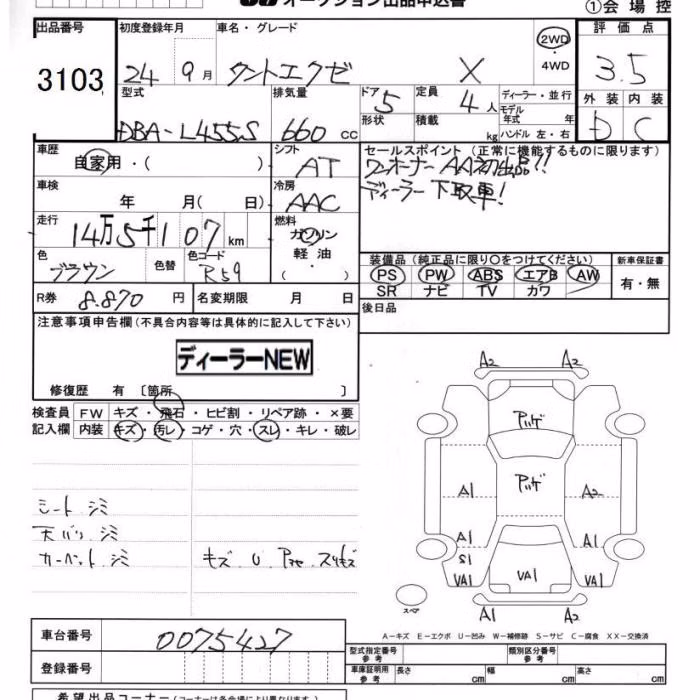 オークション出品申込書
①会場控
出品番号 初度登録年月 車名・グレード 2WD 評価点
3103 24 9月 タントエクゼ X ・4WD 3.5
型式 排気量 ドア 5 定員 4人 ディーラー・並行
モデル年式 年
外装 内装
DBA-L455S 660cc 形状 積載 kg ハンドル 左・右 D C
車歴 自家用・( ) シフト AT セールスポイント(正常に機能するものに限ります)
ワンオーナー AA初出品!!
ディーラー下取車!
車検 年 月( 日) 冷房 AAC
走行 14万5千107km 燃料 ガソリン
軽油・
( )
色 ブラウン 色替 色コード R59
装備品(純正品に限り○をつけてください) 新車保証書
PS PW ABS エアB AW 有・無
SR ナビ TV カワ
R券 8.870円 名変期限 月 日 後日品
注意事項申告欄(不具合内容等は具体的に記入して下さい)
ディーラーNEW
修復歴 有 〔箇所 〕
検査員 FW キズ・飛石・ヒビ割・リペア跡・×要
記入欄 内装 キズ・汚レ・コゲ・穴・スレ・キレ・破レ
シート シミ
天バリ シミ
カーペット シミ キズ U
A2 A2
A1 A2
A1 A1
S1
VA1 VA1 VA1
A1 A2
スペア
A-キズ E-エクボ U-凹み W-補修跡 S-サビ C-腐食 XX-交換済
車台番号 0075427
型式指定番号 参考 類別区分番号 参考
登録番号 車庫証明用 参考 長さ cm 幅 cm 高さ cm
希望出品コーナー(コーナーは各会場により異なります)